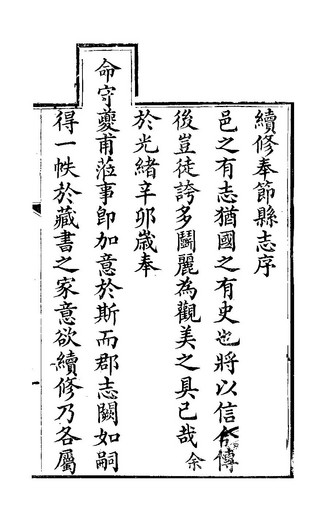 續修奉節縣志序
邑之有志猶國之有史也將以信今傳
後豈徒誇多鬬麗為觀美之具已哉余
於光緒辛卯歲奉
命守夔甫蒞事卽加意於斯而郡志闕如嗣
得一帙於藏書之家意欲續修乃各屬